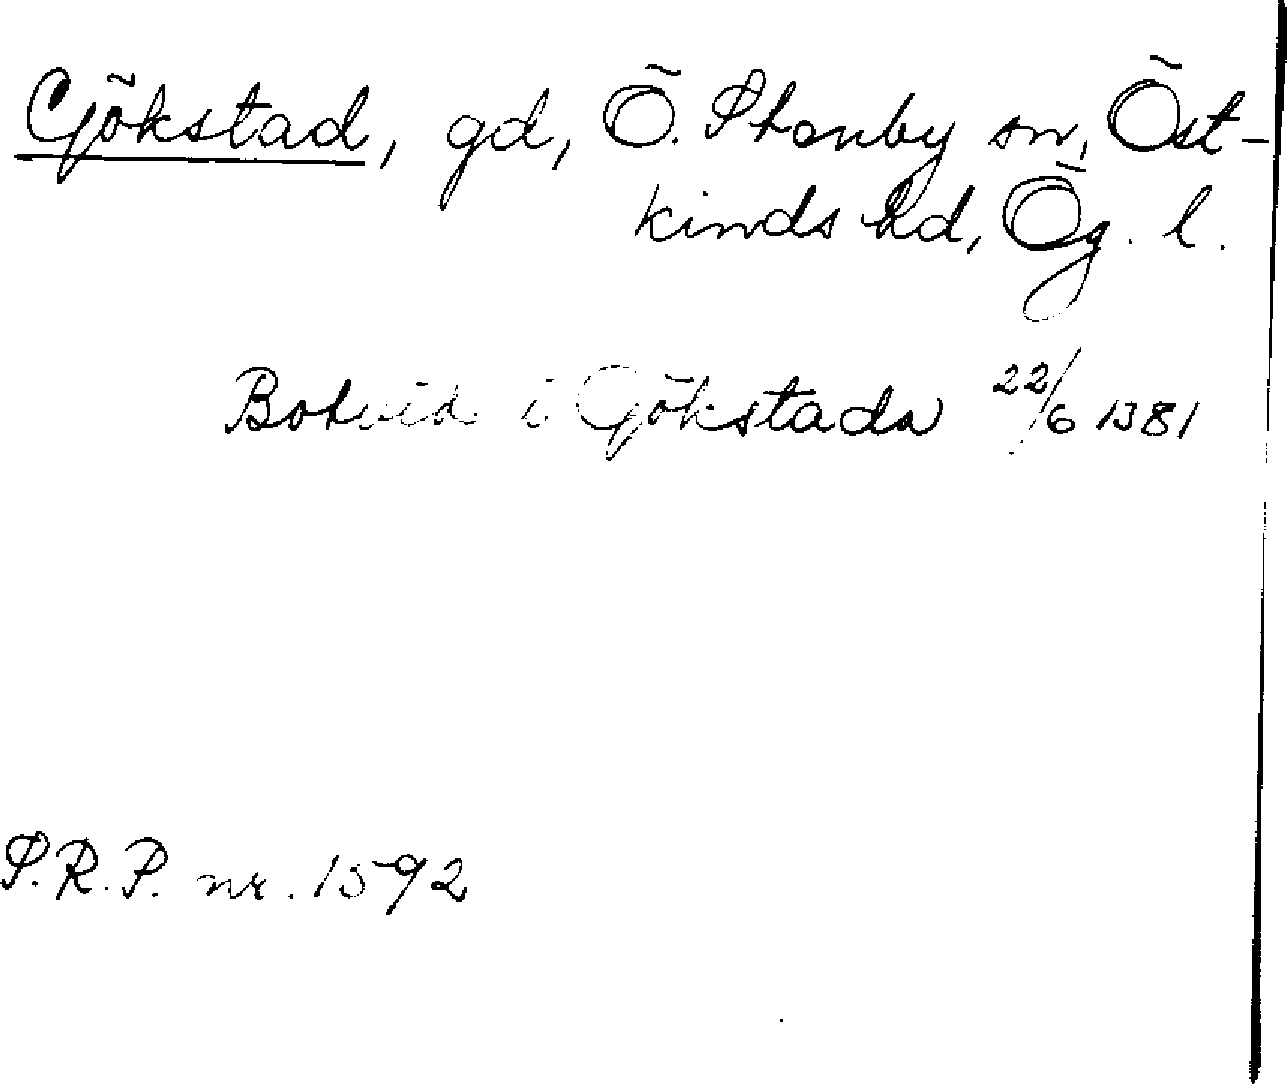 Gökstad, gd, Ö. Skenby sn, Öst-
kinds hd, Ög. l.
Botvid i Gökstada 22/6 1381
S.R.P. nr. 1592